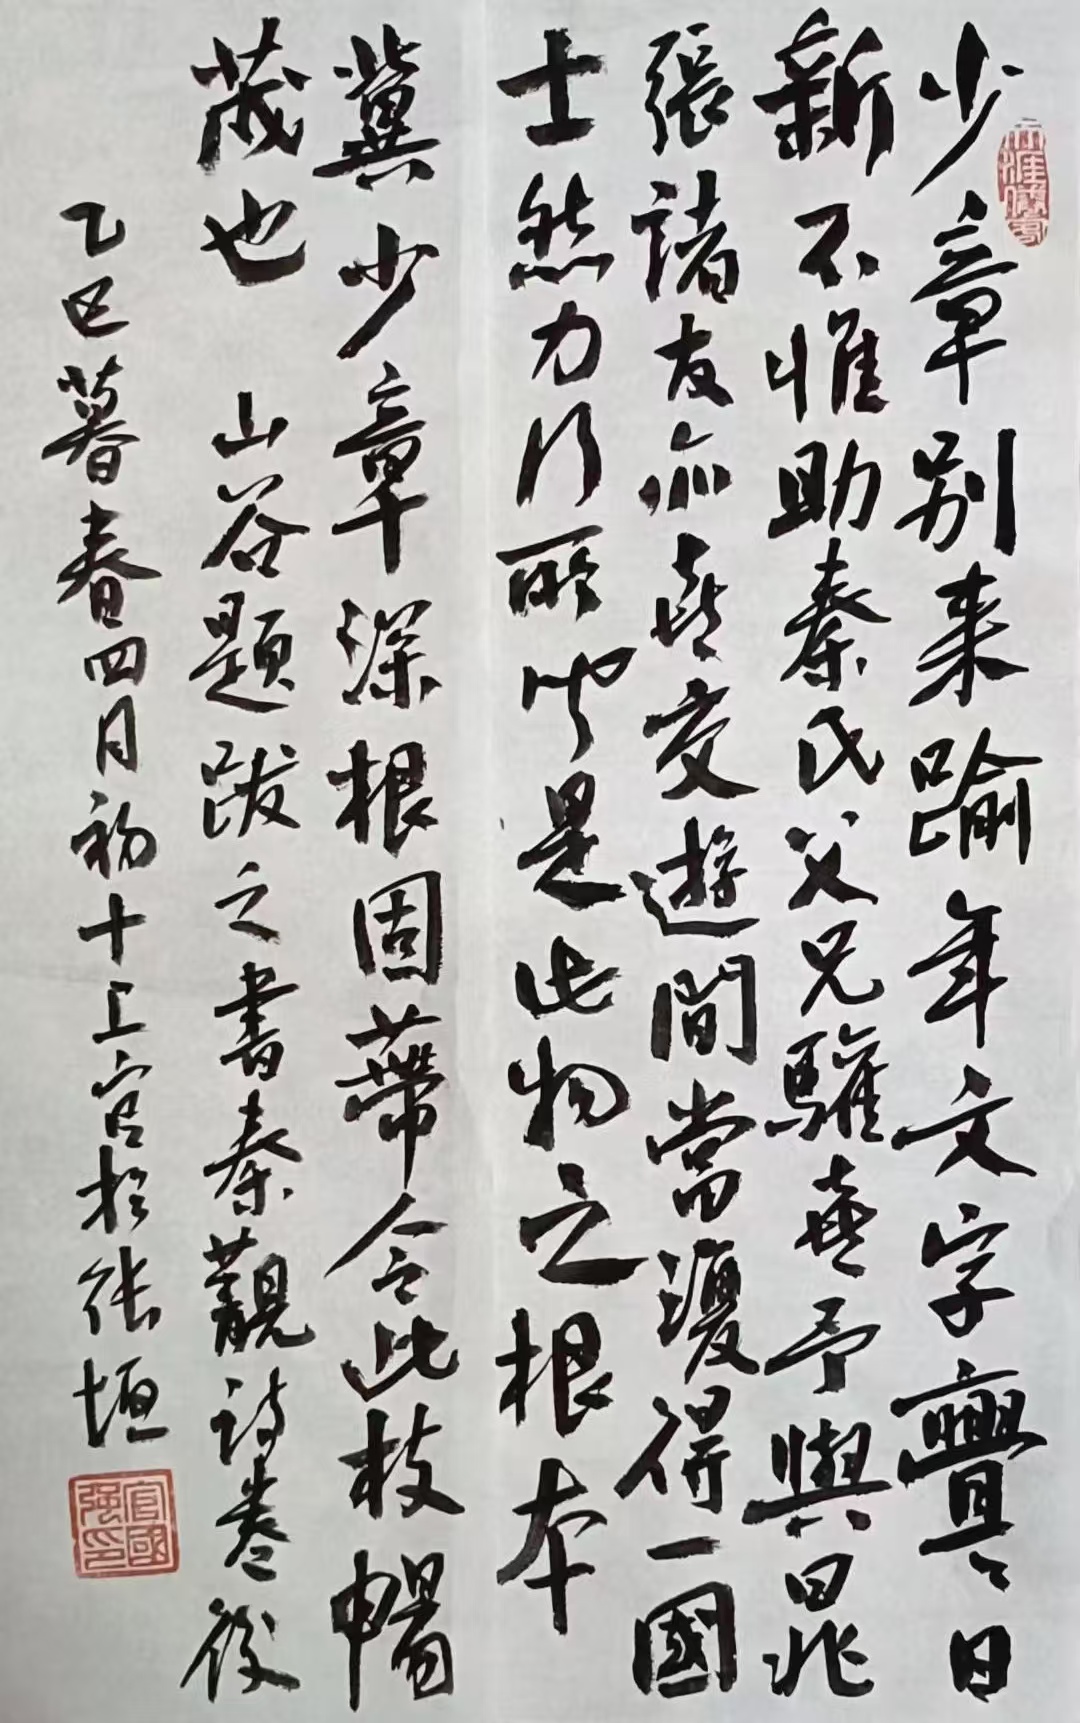 少章别来踰年文字亹亹日
新不惟助秦氏父兄驩喜予與晁
張諸友亦喜交遊間當復得一國
士然力行所聞是此物之根本
冀少章深根固蔕令此枝暢
茂也 山谷題跋之書秦觀詩卷後
乙巳暮春四月初十上官於張垣
官國强印